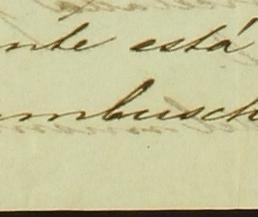 nte está
mbusch